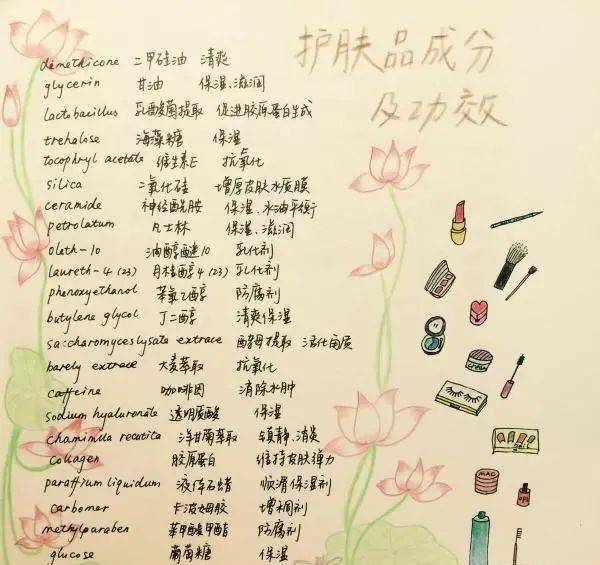 护肤品成分
及功效
dimethicone 二甲硅油 清爽
glycerin 甘油 保湿、滋润
lactobacillus 乳酸菌提取 促进胶原蛋白生成
treholose 海藻糖 保湿
tocophryl acetate 维生素E 抗氧化
silica 二氧化硅 增厚皮肤水质膜
ceramide 神经酰胺 保湿、水油平衡
petrolatum 凡士林 保湿、滋润
oleth-10 油醇醚10 乳化剂
laureth-4 (23) 月桂醇4 (23) 乳化剂
phenoxyethanol 苯氧乙醇 防腐剂
butylene glycol 丁二醇 清爽保湿
saccharomyceslysate extrace 酵母提取 活化角质
barely extrace 大麦萃取 抗氧化
caffeine 咖啡因 消除水肿
sodium hyaluronate 透明质酸 保湿
chamimila recutita 洋甘菊萃取 镇静、消炎
collagen 胶原蛋白 维持皮肤弹力
paraffium liquidum 液体石蜡 顺滑保湿剂
carbomer 卡波姆胶 增稠剂
methylparaben 苯甲酸甲酯 防腐剂
glucose 葡萄糖 保湿
CREAM
MAC